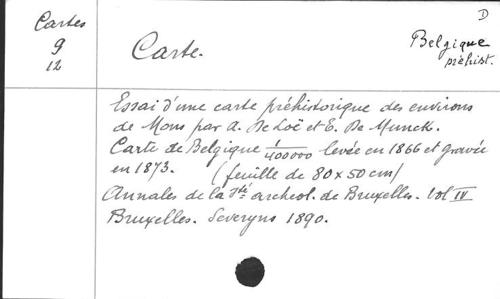 Cartes
9
12
Carte.
D
Belgique
préhist.
Essai d'une carte préhistorique des environs
de Mons par A. De Loë et E. De Munck.
Carte de Belgique 1/400000 levée en 1866 et gravée
en 1873. (feuille de 80 x 50 cm)
Annales de la Sté archéol. de Bruxelles. Vol IV
Bruxelles. Severyns 1890.